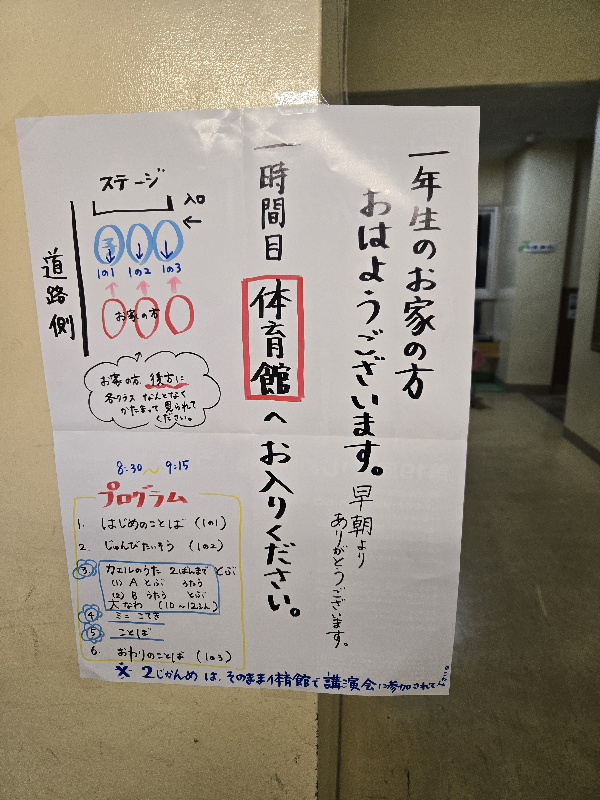 一年生のお家の方
おはようございます。
早朝より
ありがとうございます。
一時間目 体育館へお入りください。
ステージ
入口
←
道路側
子
1の1 1の2 1の3
お家の方
お家の方 後方に
各クラス なんとなく
かたまって 見られて
ください。
8:30〜9:15
プログラム
1. はじめのことば (1の1)
2. じゅんびたいそう (1の2)
3. カエルのうた 2ばんまで とぶ
(1) A とぶ うたう
(2) B うたう とぶ
大なわ (10〜12ふん)
4. ミニ こてき
5. ことば
6. おわりのことば (1の3)
※ 2じかんめ は、そのまま体育館で講演会に参加されて